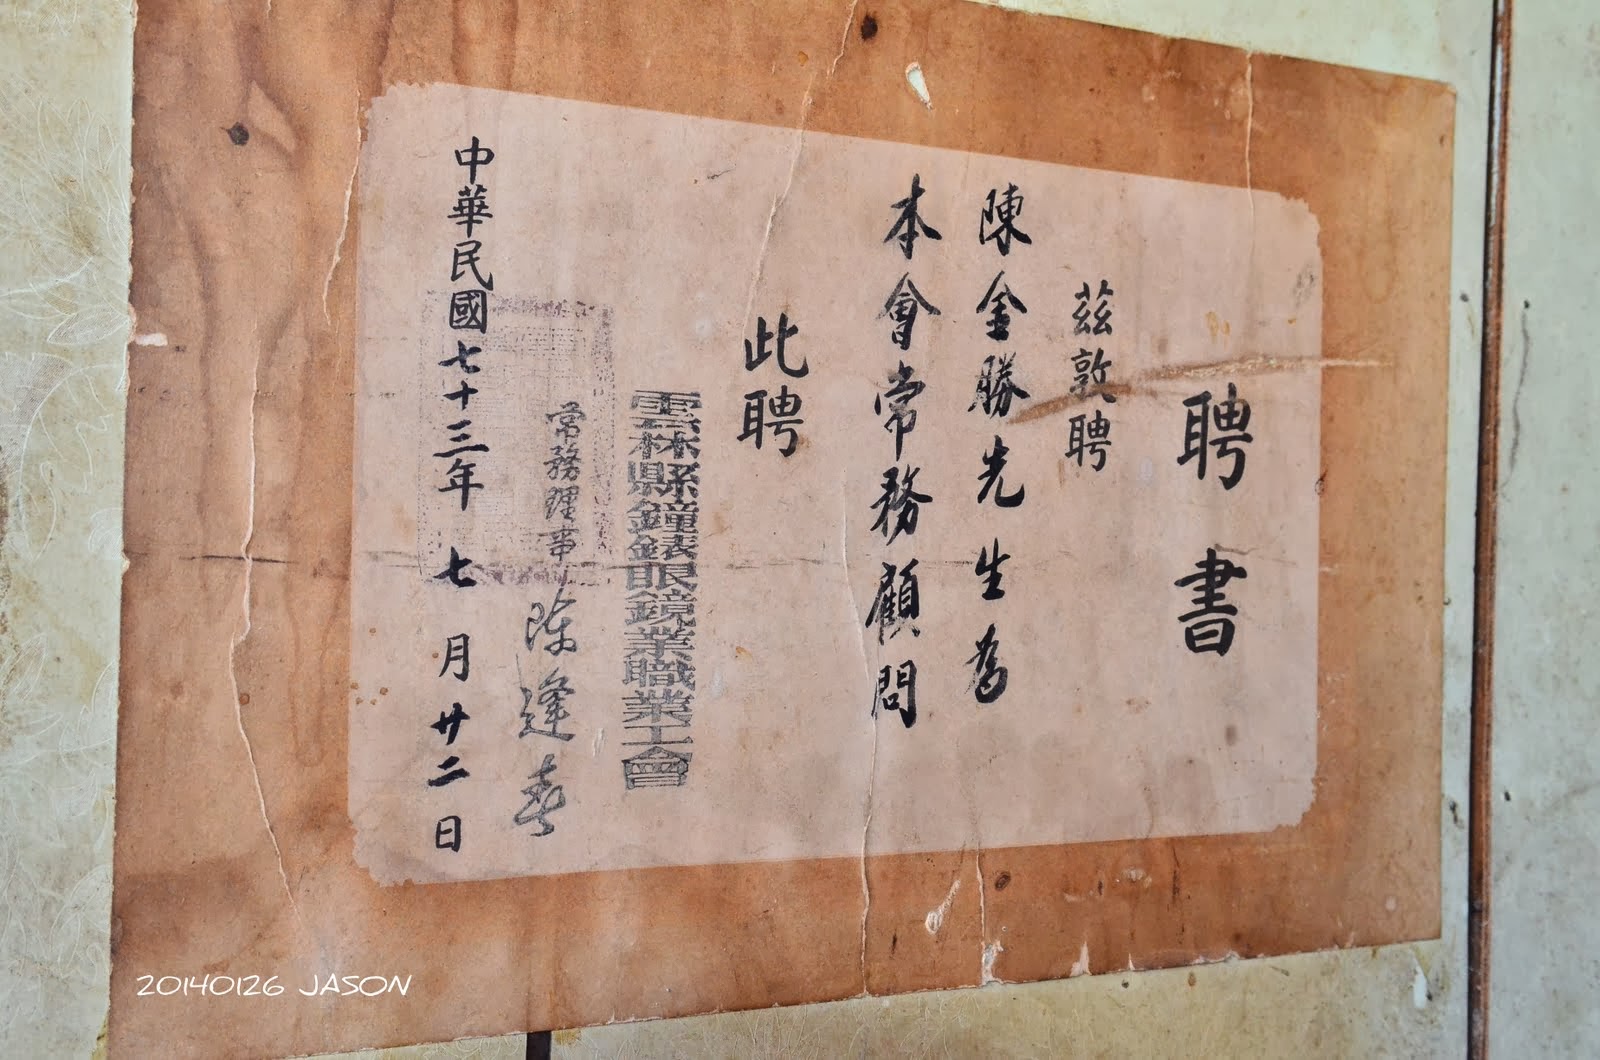 聘書
茲敦聘
陳金勝先生為
本會常務顧問
此聘
雲林縣鐘錶眼鏡業職業工會
常務理事 陳逢春
中華民國七十三年七月廿二日
20140126 JASON